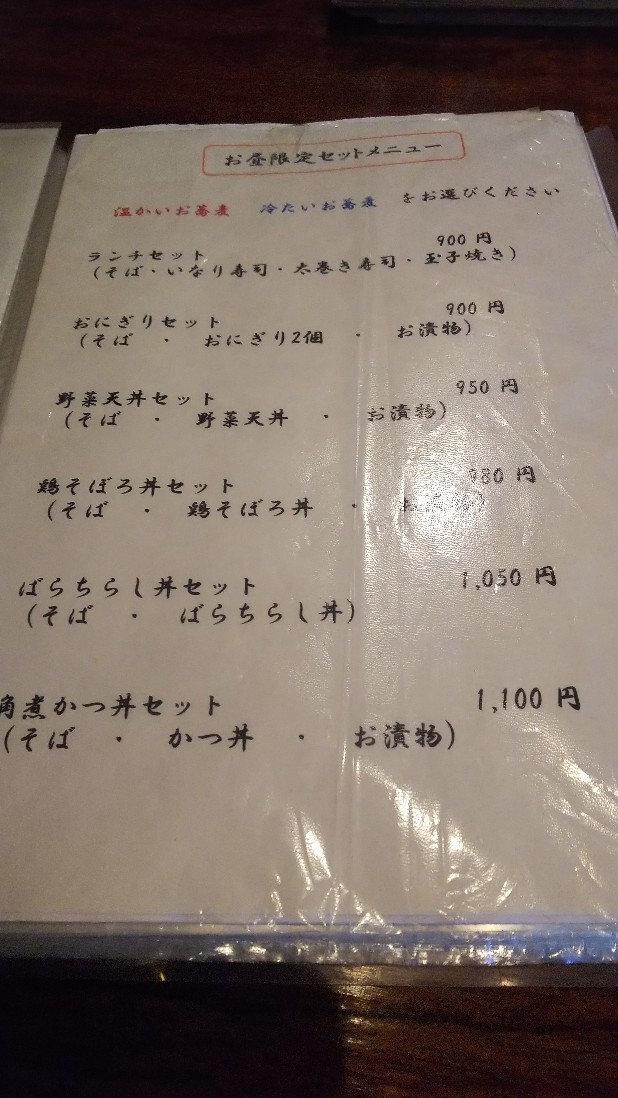 お昼限定セットメニュー
温かいお蕎麦 冷たいお蕎麦 をお選びください
ランチセット 900 円
(そば・いなり寿司・太巻き寿司・玉子焼き)
おにぎりセット 900 円
(そば ・ おにぎり2個 ・ お漬物)
野菜天丼セット 950 円
(そば ・ 野菜天丼 ・ お漬物)
鶏そぼろ丼セット 980 円
(そば ・ 鶏そぼろ丼 ・ お漬物)
ばらちらし丼セット 1,050 円
(そば ・ ばらちらし丼)
角煮かつ丼セット 1,100 円
(そば ・ かつ丼 ・ お漬物)